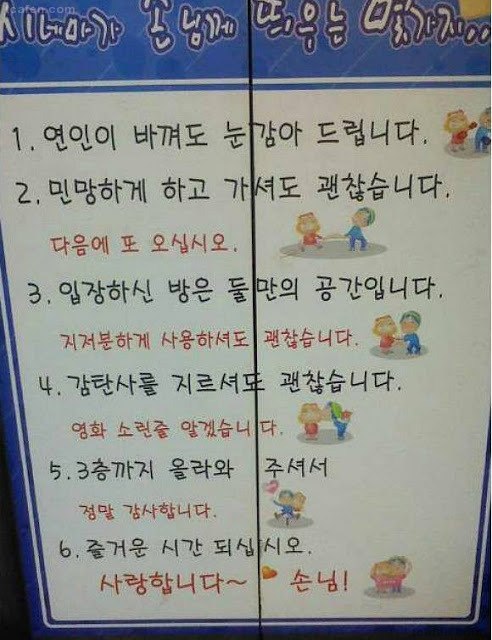 cafen.com
시네마가 손님께 띄우는 몇가지..
1. 연인이 바껴도 눈감아 드립니다.
2. 민망하게 하고 가셔도 괜찮습니다.
다음에 또 오십시오.
3. 입장하신 방은 둘만의 공간입니다.
지저분하게 사용하셔도 괜찮습니다.
4. 감탄사를 지르셔도 괜찮습니다.
영화 소린줄 알겠습니다.
5. 3층까지 올라와 주셔서
정말 감사합니다.
6. 즐거운 시간 되십시오.
사랑합니다~ 손님!